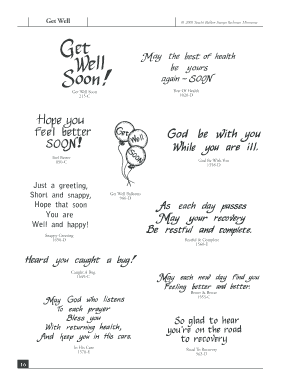 Get Well
Get
Well
Soon!
Get Well Soon
May the best of health
be yours
again – SOON
Best Of Health
Hope you
feel better
SOON!
Feel Better
Get
Well
SOON
Get Well Balloons
God be with you
While you are ill.
God Be With You
Just a greeting,
Short and snappy,
Hope that soon
You are
Well and happy!
Snappy Greeting
As each day passes
May your recovery
Be restful and complete.
Restful & Complete
Heard you caught a bug!
Caught A Bug
May each new day find you
Feeling better and better.
Better & Better
May God who listens
To each prayer
Bless you
With returning health,
And keep you in His care.
In His Care
So glad to hear
you're on the road
to recovery
Road To Recovery
16